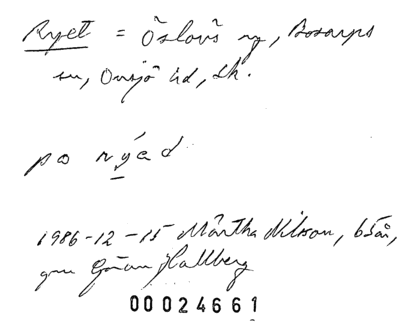 Ryet = Öslövs ry, Bosarps
sn, Onsjö hd, Sk.
på nýad
1986-12-15 Märtha Nilsson, 65 år,
gm Göran Hallberg
00024661